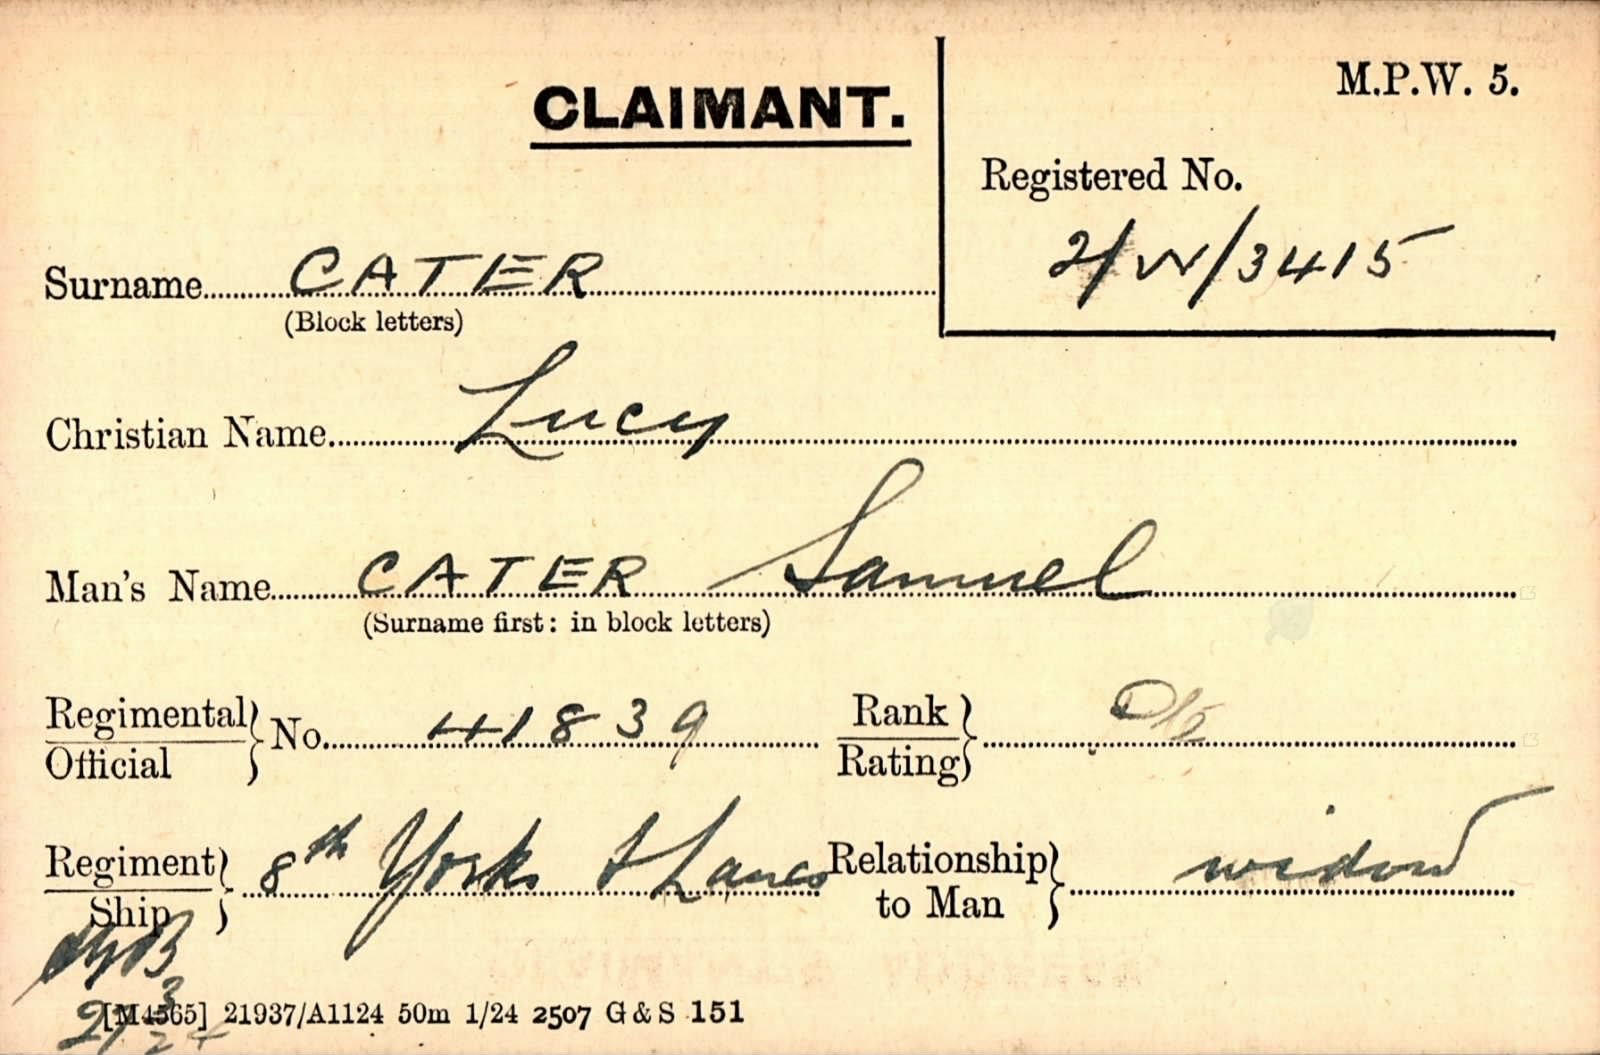 CLAIMANT.
M.P.W. 5.
Registered No.
2/W/3415
Surname CATER
(Block letters)
Christian Name Lucy
Man's Name CATER Samuel
(Surname first: in block letters)
Regimental
Official No. 41839
Rank
Rating
Regiment
Ship 8th York & Lancs
Relationship
to Man widow
27 3 24
[M4565] 21937/A1124 50m 1/24 2507 G & S 151